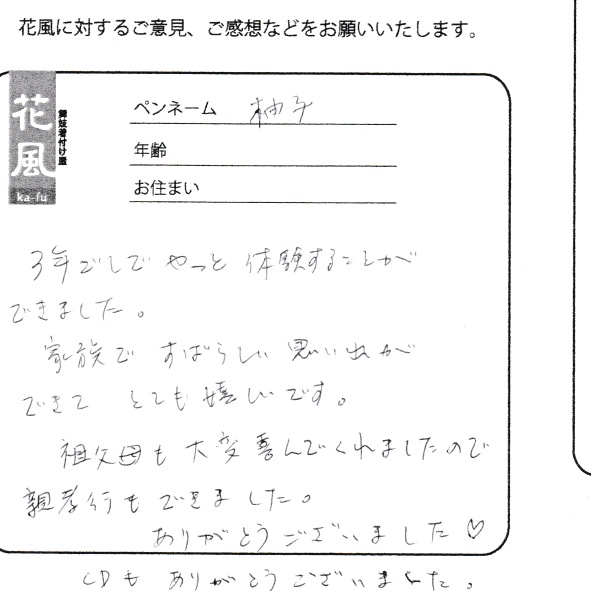 花風に対するご意見、ご感想などをお願いいたします。
花風
舞妓着付け屋
ka-fu
ペンネーム 柚子
年齢
お住まい
3年ごしで やっと 体験することが
できました。
家族で すばらしい 思い出が
できて とても 嬉しいです。
祖父母も 大変 喜んでくれましたので
親孝行も できました。
ありがとうございました♡
CDも ありがとうございました。